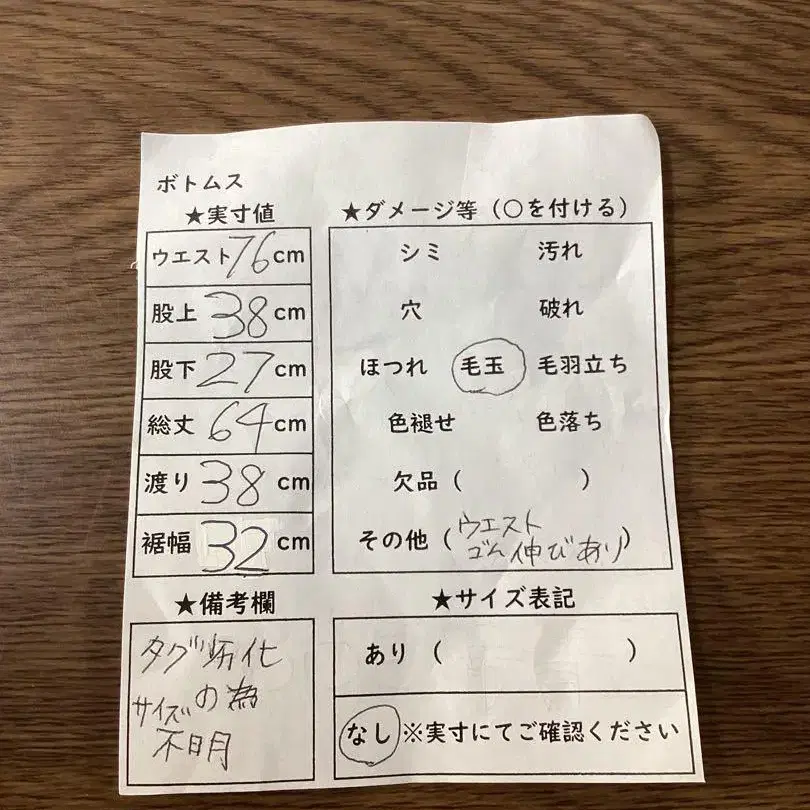 ボトムス
★実寸値
ウエスト 76 cm
股上 38 cm
股下 27 cm
総丈 64 cm
渡り 38 cm
裾幅 32 cm
★ダメージ等（○を付ける）
シミ 汚れ
穴 破れ
ほつれ 毛玉 毛羽立ち
色褪せ 色落ち
欠品（ ）
その他（ウエスト
ゴム伸びあり）
★備考欄
タグ劣化
の為
サイズ
不明
★サイズ表記
あり（ ）
なし ※実寸にてご確認ください